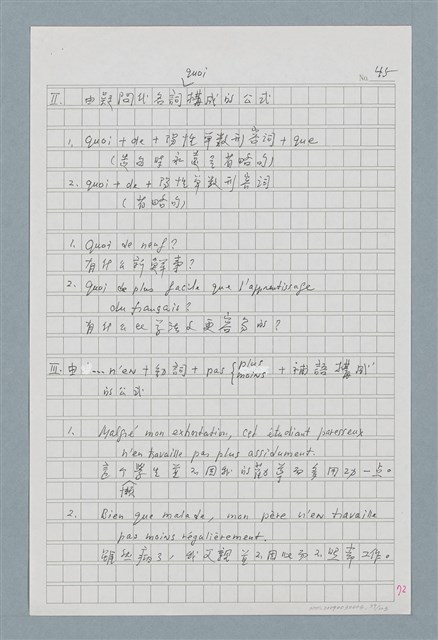 quoi
No. 45
II. 由疑問代名詞構成的公式
1. quoi + de + 陽性單数形容词 + que
2. quoi + de + 陽性單数形容词
(省略的)
1. Quoi de neuf?
有什么新鮮事?
2. Quoi de plus facile que l'apprentissage
du français?
有什么比学法文更容易的?
III. 由 ... n'en + 動詞 + pas { plus
moins + 補語構成
的公式
1. Malgré mon exhortation, cet étudiant paresseux
n'en travaille pas plus assidument.
學生並不因我的勸導而多用功一点。
懶
2. Bien que malade, mon père n'en travaille
pas moins régulièrement.
雖然病了, 我父親並不因此而不照常工作。
72